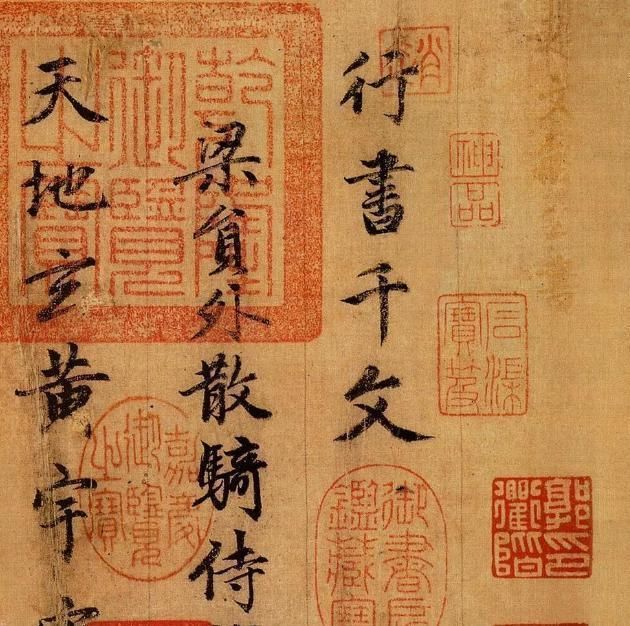 神品
郭印衢階
行書千文
御書房鑑藏寶
梁貟外散騎侍
乾隆御覽之寶
嘉慶御覽之寶
天地玄黄宇